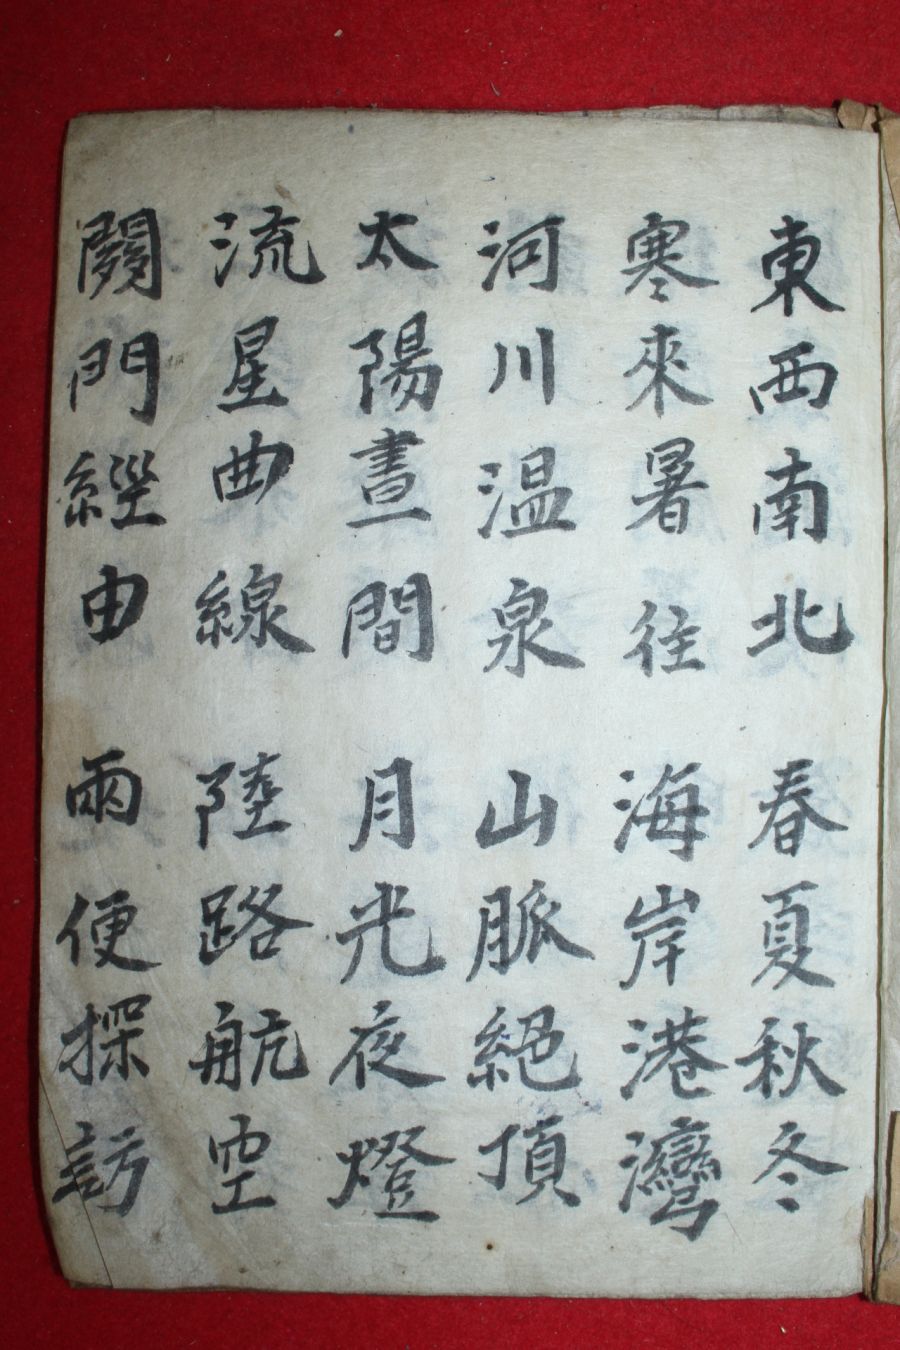 東西南北 春夏秋冬
寒來暑往 海岸港灣
河川温泉 山脈絕頂
太陽晝間 月光夜燈
流星曲線 陸路航空
門經由 雨便探訪